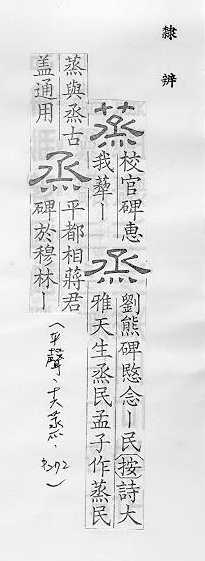 隸辨
蒸
校官碑惠
我丨
烝
劉熊碑愍念丨民按詩大
雅天生烝民孟子作蒸民
蒸與烝古
盖通用
烝
平都相蔣君
碑於穆林丨
(平聲、十六蒸、)